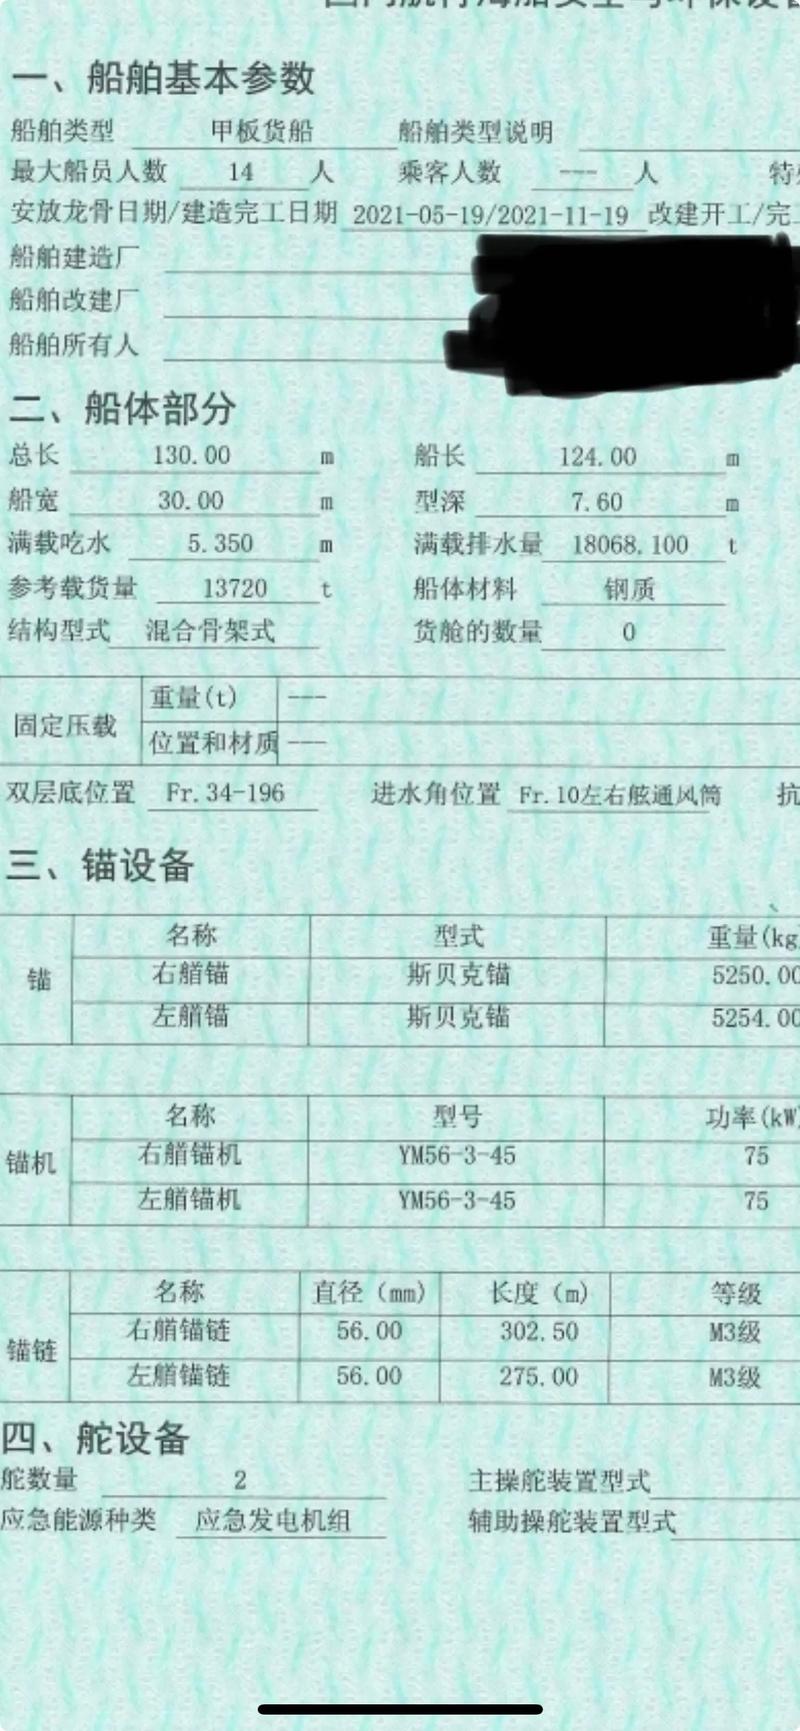 一、船舶基本参数
船舶类型 甲板货船 船舶类型说明
最大船员人数 14 人 乘客人数 --- 人 特
安放龙骨日期/建造完工日期 2021-05-19/2021-11-19 改建开工/完
船舶建造厂
船舶改建厂
船舶所有人
二、船体部分
总长 130.00 m 船长 124.00 m
船宽 30.00 m 型深 7.60 m
满载吃水 5.350 m 满载排水量 18068.100 t
参考载货量 13720 t 船体材料 钢质
结构型式 混合骨架式 货舱的数量 0
固定压载 重量(t) ---
位置和材质 ---
双层底位置 Fr.34-196 进水角位置 Fr.10左右舷通风筒 抗
三、锚设备
名称 型式 重量(kg)
锚 右艏锚 斯贝克锚 5250.00
左艏锚 斯贝克锚 5254.00
名称 型号 功率(kW)
锚机 右艏锚机 YM56-3-45 75
左艏锚机 YM56-3-45 75
名称 直径（mm） 长度（m) 等级
锚链 右艏锚链 56.00 302.50 M3级
左艏锚链 56.00 275.00 M3级
四、舵设备
舵数量 2 主操舵装置型式
应急能源种类 应急发电机组 辅助操舵装置型式